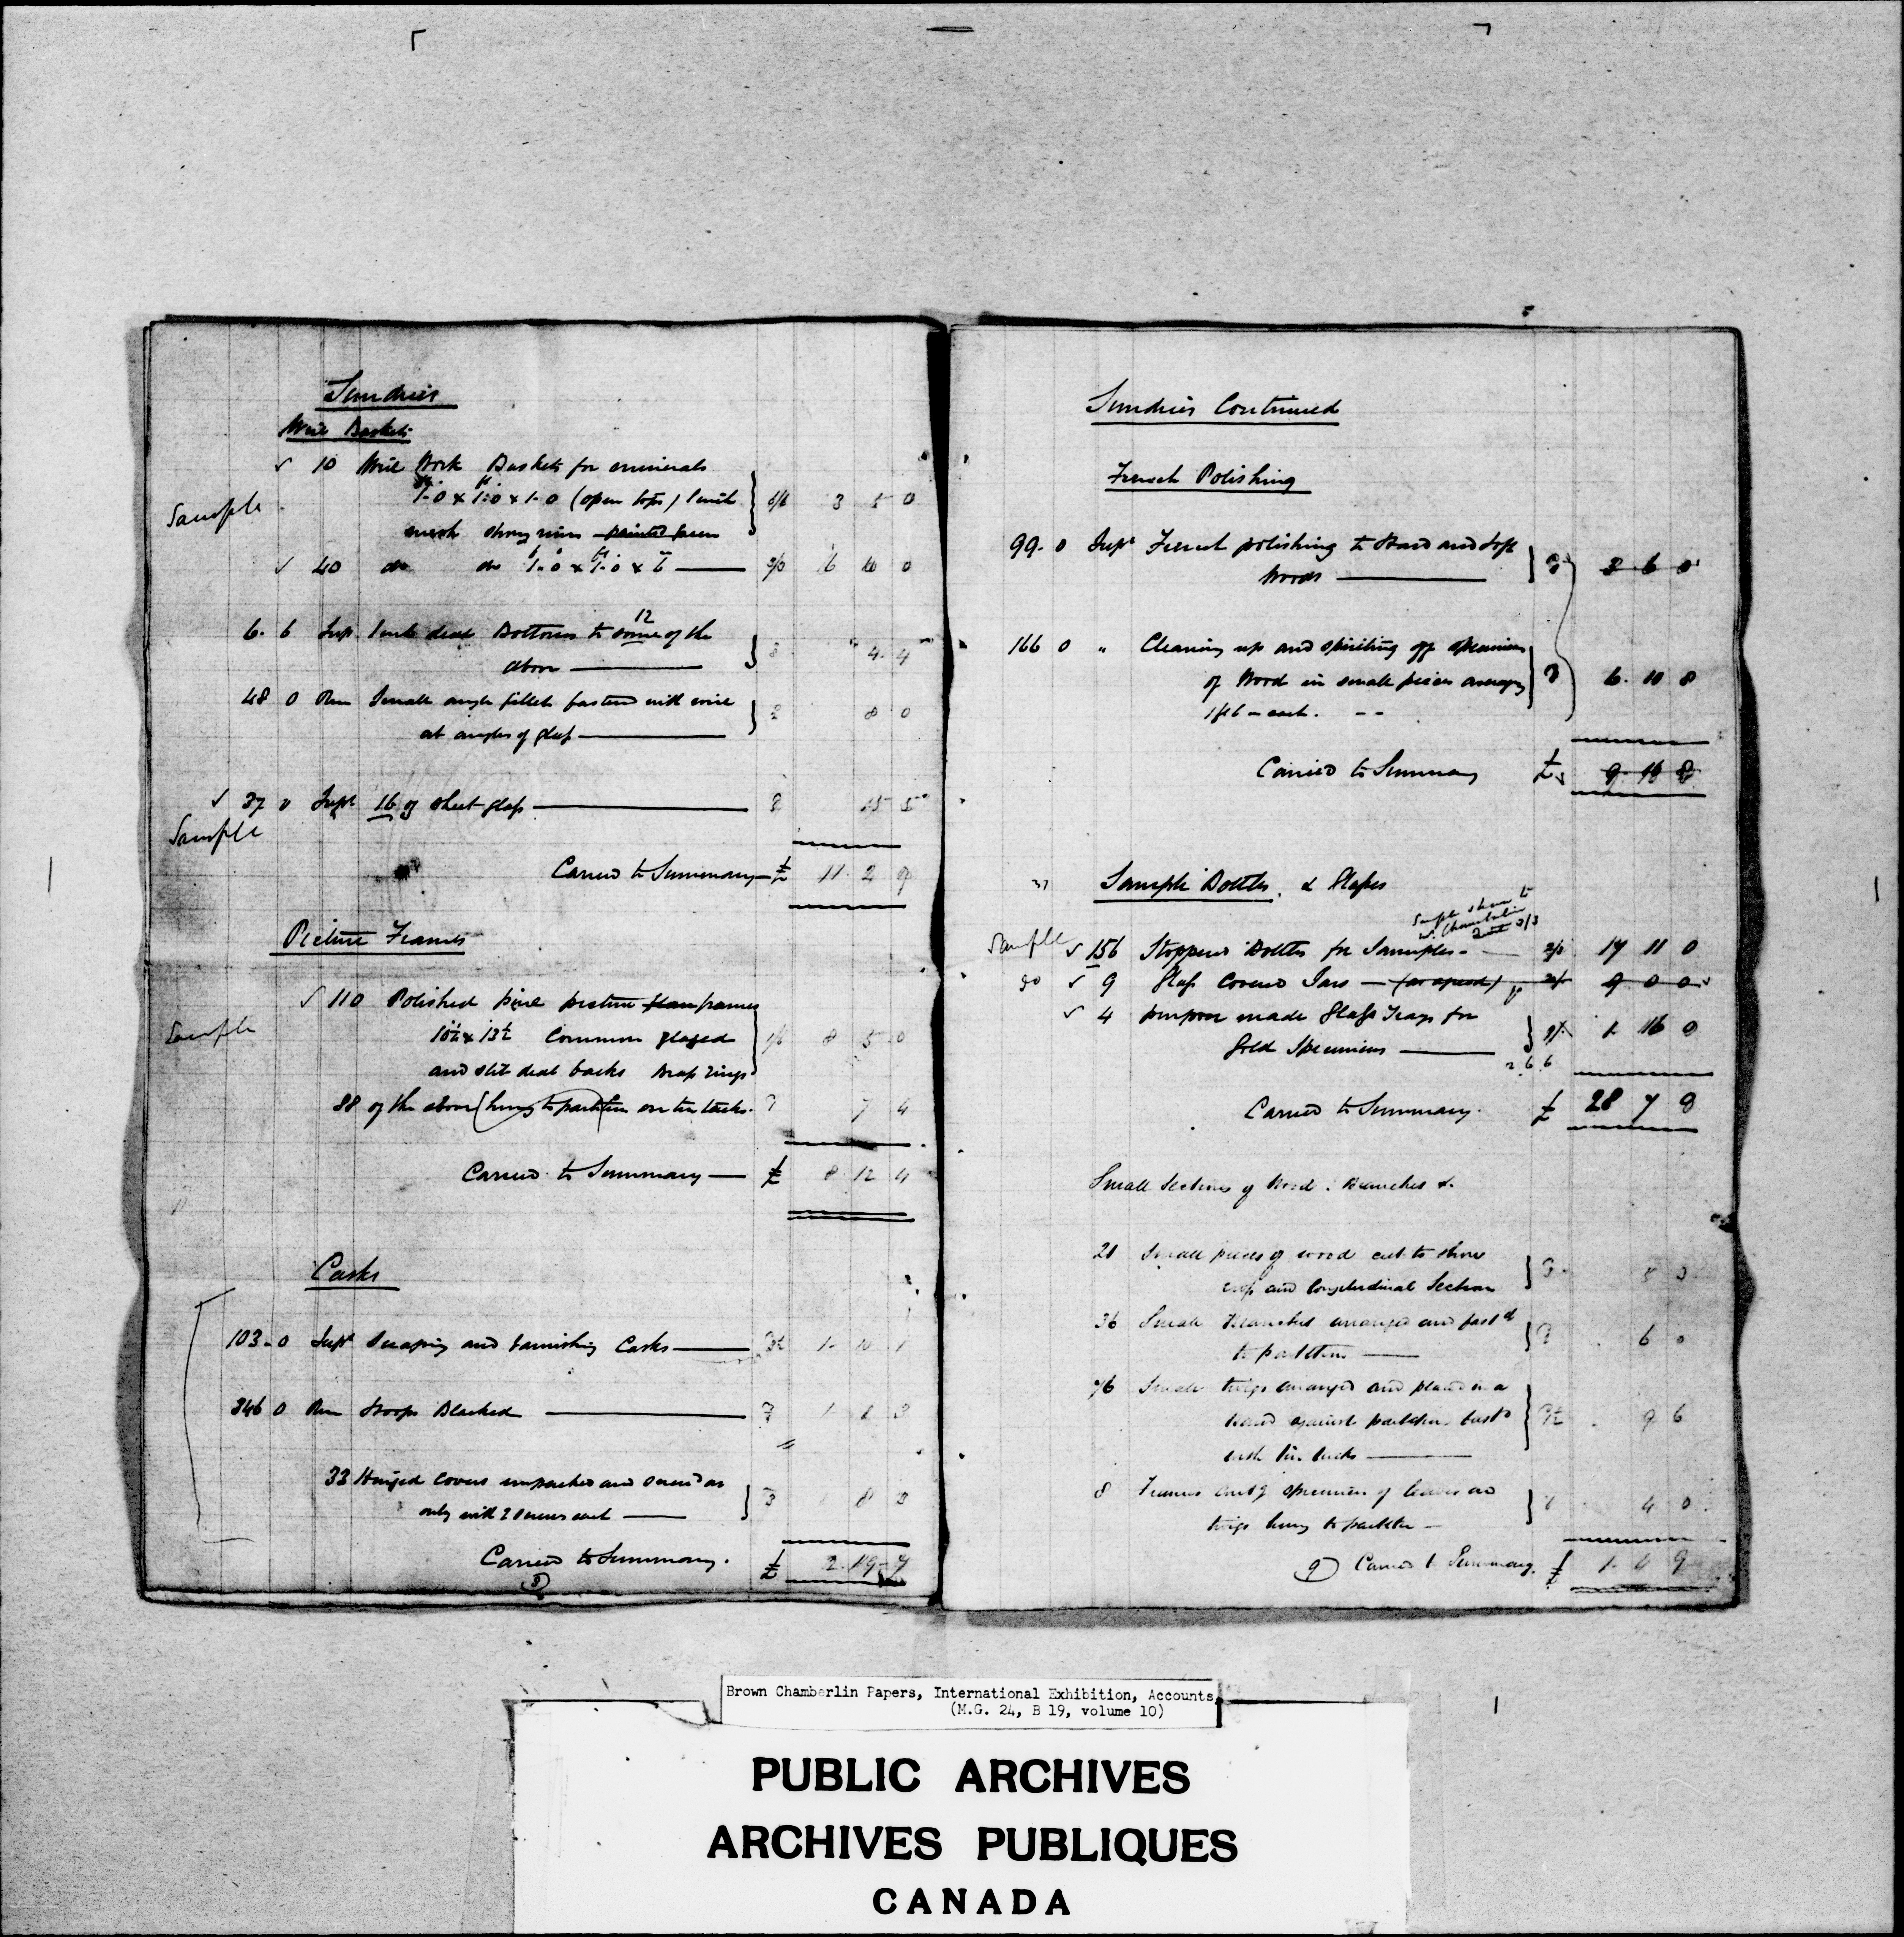 Sundries
Wire Baskets
✓ 10 Wire Work Baskets for minerals
Sample 1-0 x 1-0 x 1-0 (open tops) 1 inch 6/6 3 5 0
mesh strong rims painted green
✓ 40 do do 1-0 x 1-0 x 6 — 6 10 0
6. 6 Sup 1 inch deal Bottoms to 12 some of the
above — 4. 4
48 0 Run Small angle fillet fastened with wire
at angles of glass — 2 8 0
✓ 37 0 Supl 16 oz sheet glass — 15 5
Sample
Carried to Summary — £ 11. 2 9
Picture Frames
✓ 110 Polished pine picture frames
Sample 10½ x 13½ Common glazed 1/6 8 5 0
and slit deal backs Brass rings
88 of the above (hung to partition on tin tacks. 7 4
Carried to Summary — £ 8. 12 4
Casks
103-0 Supl Scraping and varnishing Casks — 3½ 1- 10 1
346 0 Run Hoops Blacked — 1
33 Hinged Covers unpacked and
only with 2 screws each — 3 8 3
Carried to Summary. £ 2. 19- 7
(8)
Sundries Continued
French Polishing
99- 0 Supl French polishing to Hard and Soft
Woods — 3 6 0
166 0 " Cleaning up and spiriting off specimens
of Wood in small pieces averaging 6. 10 8
1 ft 6 - each. - -
Carried to Summary £ 9. 16 8
Sample Bottles, & Glasses
Sample shown to
Mr. Chamberlin
2/3
Sample ✓ 156 Stoppered Bottles for Samples - 17 11 0
✓ 9 Glass Covered Jars — (as agreed) 9 0 0
✓ 4 purpose made Glass Trays for
Gold Specimens — 9/ 1 16 0
2. 6. 6
Carried to Summary. £ 28 7 0
Small Sections of Wood: Branches &.
21 Small pieces of wood cut to show
cross and longitudinal Section 3 5 3
36 Small Branches arranged and fastd
to partition — 6 0
76 Small twigs arranged and placed in a
against partition 9 6
with tin tacks —
8 Frames contg specimens of leaves and
twigs hung to partition — 4 0
(9) Carried to Summary. £ 1. 4 9
Brown Chamberlin Papers, International Exhibition, Accounts
(M.G. 24, B 19, volume 10)
PUBLIC ARCHIVES
ARCHIVES PUBLIQUES
CANADA